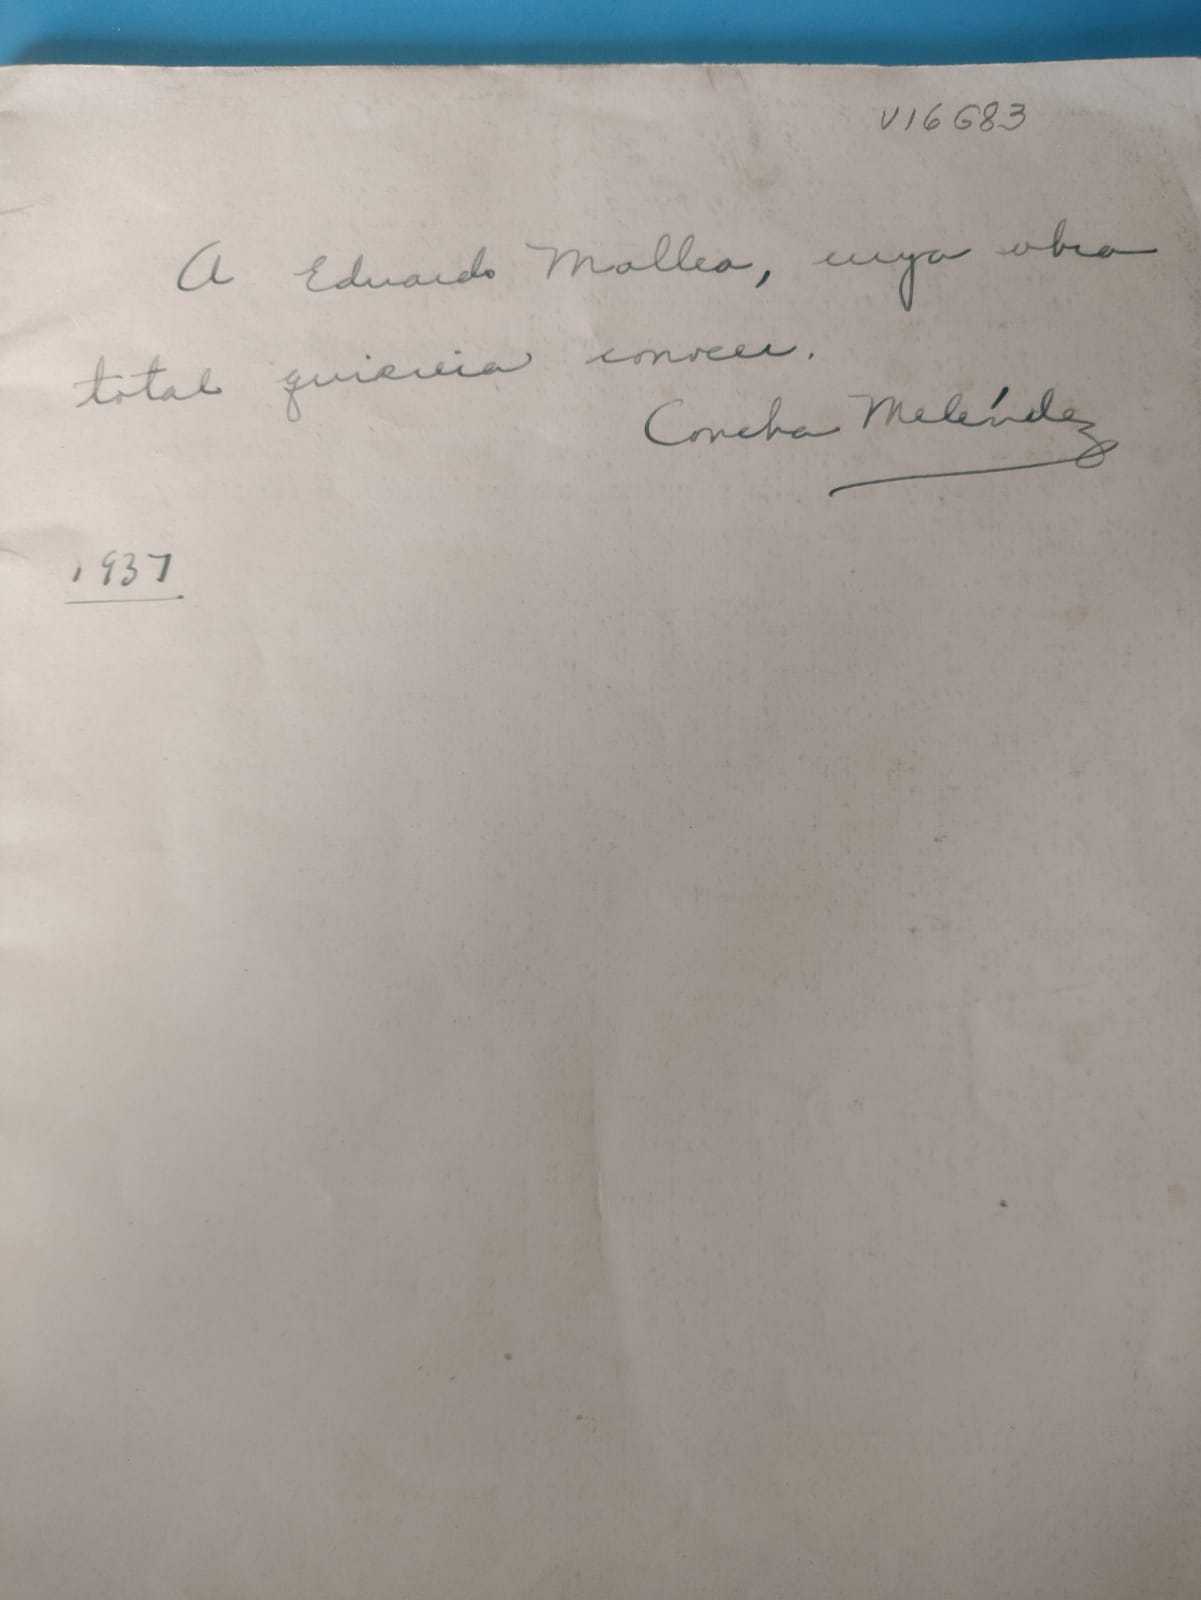 V16G83
A Eduardo Mallea, cuya obra
total quisiera conocer.
Concha Meléndez
1937